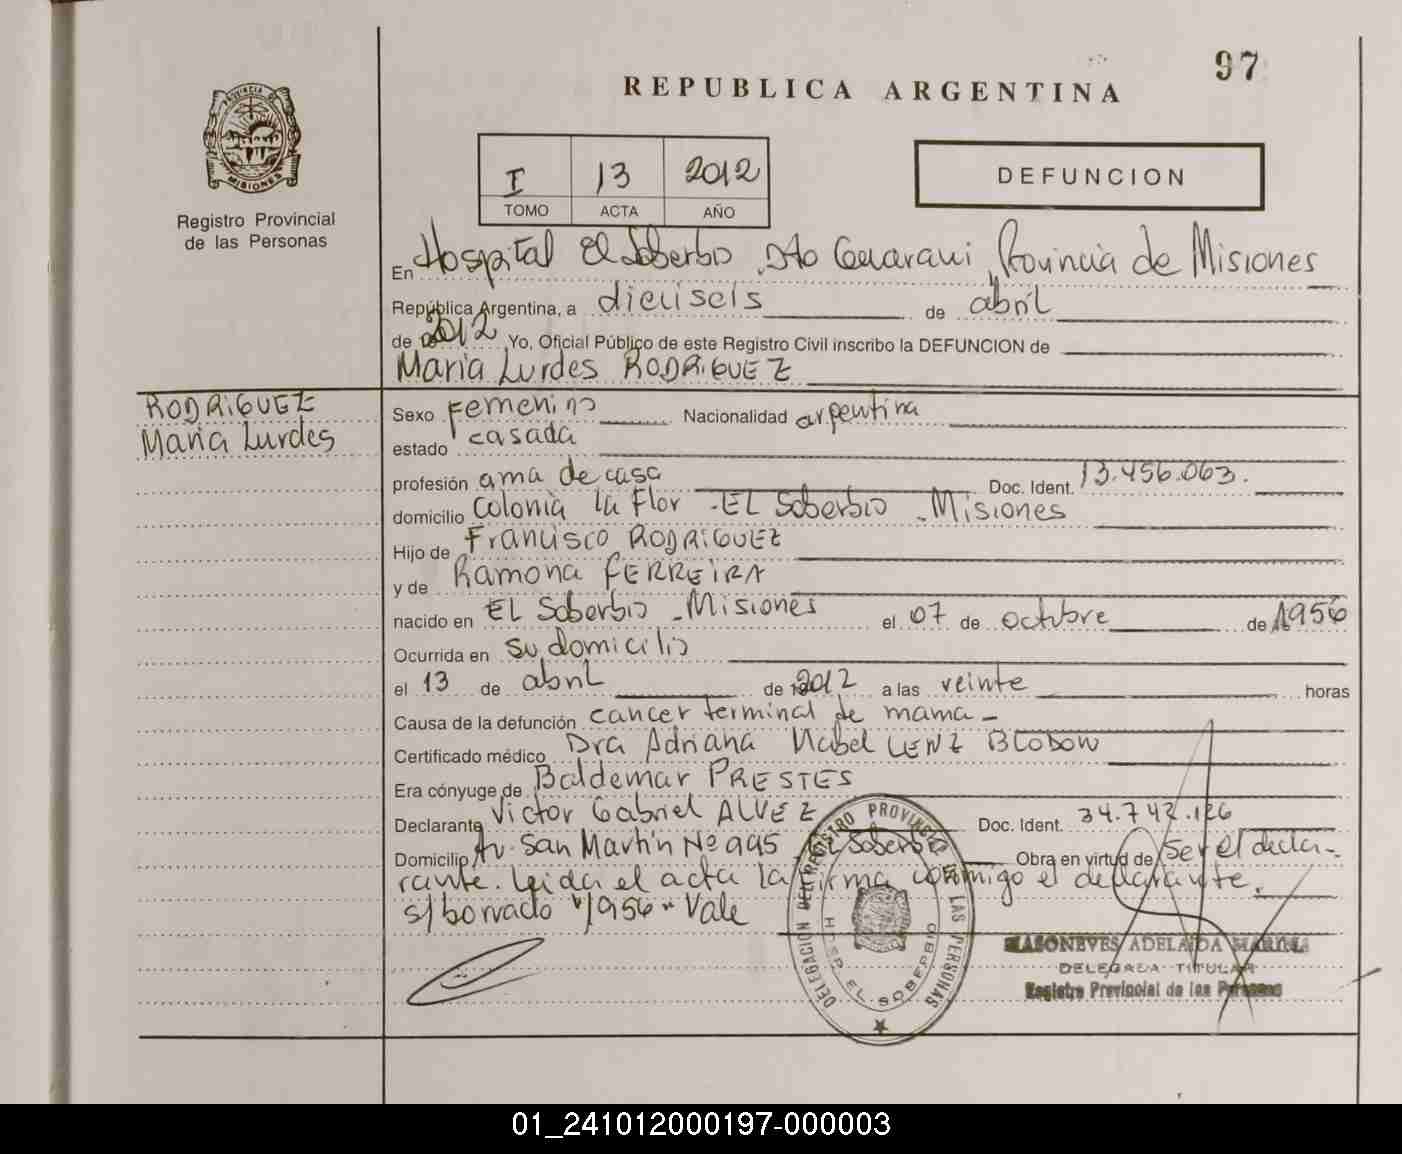 97
REPUBLICA ARGENTINA
PROVINCIA DE
MISIONES
Registro Provincial
de las Personas
I 13 2012
TOMO ACTA AÑO
DEFUNCION
En Hospital El Soberbio Dto Guarani, Provincia de Misiones
República Argentina, a dieciseis de abril
de 2012 Yo, Oficial Público de este Registro Civil inscribo la DEFUNCION de
Maria Lurdes RODRIGUEZ
RODRIGUEZ
Maria Lurdes
Sexo Femenino Nacionalidad argentina
estado casada
profesión ama de casa Doc. Ident. 13.456.063.
domicilio Colonia la Flor - EL Soberbio - Misiones
Hijo de Francisco RODRIGUEZ
y de Ramona FERREIRA
nacido en EL Soberbio - Misiones el 07 de octubre de 1956
Ocurrida en su domicilio
el 13 de abril de 2012 a las veinte horas
Causa de la defunción cancer terminal de mama -
Certificado médico Dra Adriana Mabel LENZ BLODOW
Era cónyuge de Baldemar PRESTES
Declarante Victor Gabriel ALVEZ Doc. Ident. 34.742.126
Domicilio Av. San Martin Nº 995 El Soberbio Obra en virtud de ser el decla-
rante. Leida el acta la firma conmigo el declarante.
s/borrado "1956" Vale
DELEGACION DEL REGISTRO PROVINCIAL DE LAS PERSONAS
HOSP. EL SOBERBIO
ADELAIDA
DELEGADA TITULAR
Registro Provincial de las Personas
01_241012000197-000003